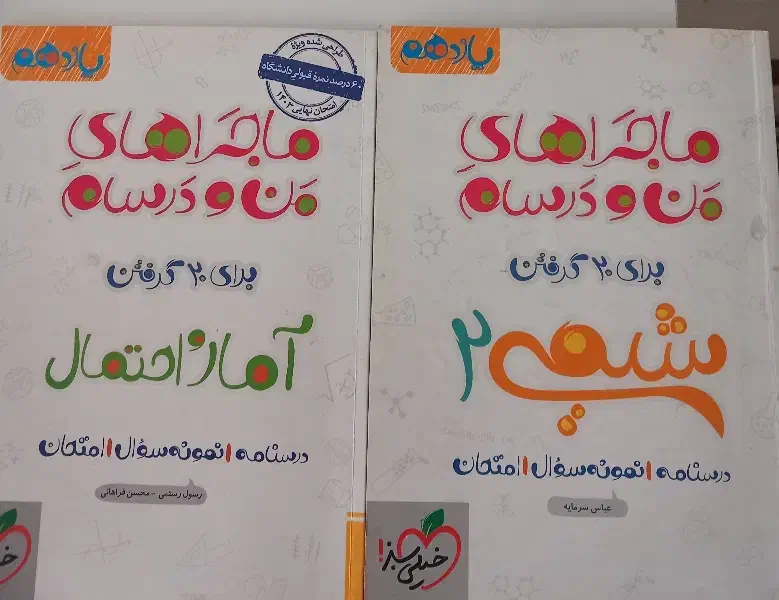 یازدهم
طراحی شده ویژۀ
۶۰ درصد نمرۀ قبولی دانشگاه
امتحان نهایی ۱۴۰۳
ماجراهایِ
مَن و دَرسام
برای ۲۰ گرفتن
آمار و احتمال
درسنامه | نمونه سؤال | امتحان
رسول رستمی - محسن فراهانی
یازدهم
ماجراهایِ
مَن و دَرسام
برای ۲۰ گرفتن
شیمی ۲
درسنامه | نمونه سؤال | امتحان
عباس سرمایه
خیلی سبز!